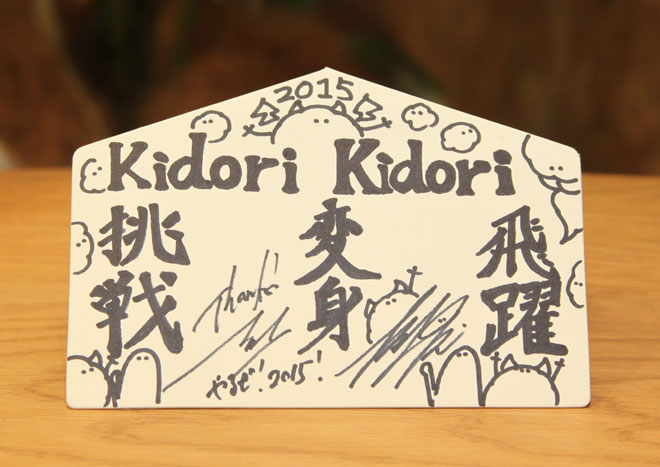 2015
Kidori Kidori
挑戦
変身
飛躍
Thanks!
やるぜ!2015!